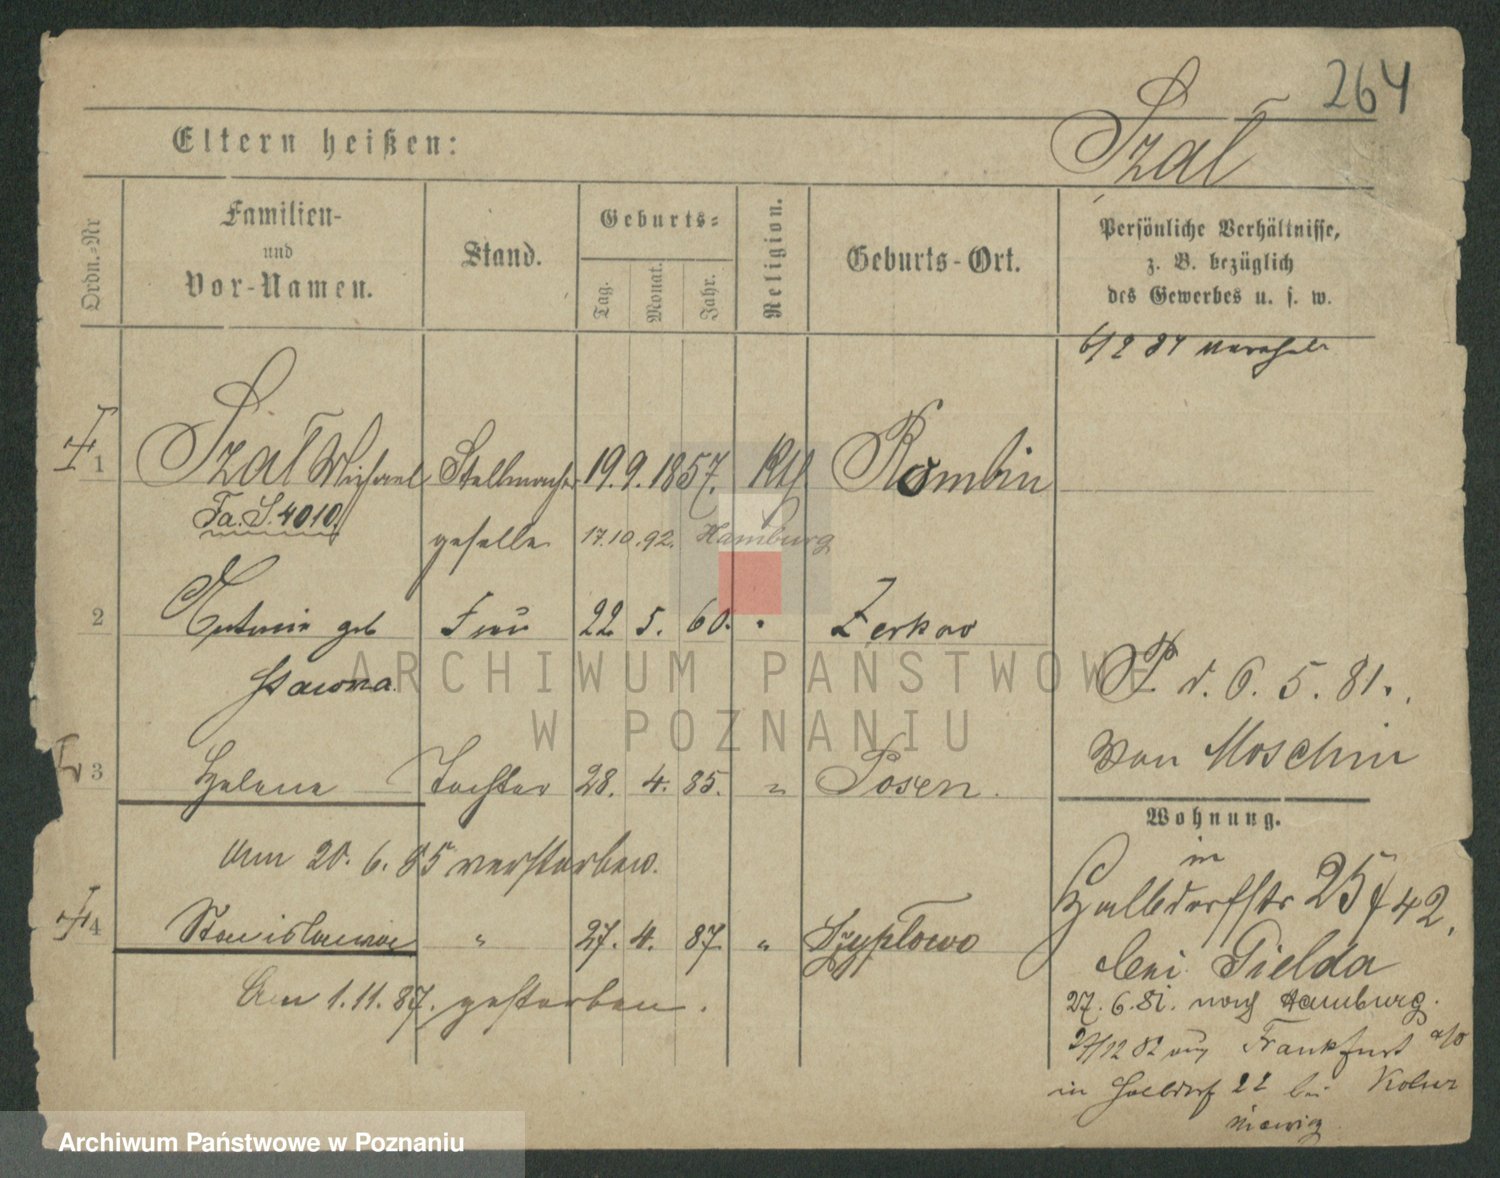 264
Szał
Eltern heißen:
Ordn.-Nr
Familien-
und
Vor-Namen.
Stand.
Geburts-
Tag.
Monat.
Jahr.
Religion.
Geburts-Ort.
Persönliche Verhältnisse,
z. B. bezüglich
des Gewerbes u. s. w.
1 Szał Michael Stellmacher 19. 9. 1857. Kth Rombin
Fa. S. 4010. geselle 17.10.92. Hamburg
2 Antonie geb Frau 22 5. 60. " Zerkow
P. d. 6. 5. 81.
von Moschin
3 Helene Tochter 28. 4. 85. " Posen.
Am 20. 6. 85 verstorben.
4 Stanislawa " 27. 4. 87. " Szypłowo
Am 1.11.87. gestorben.
Wohnung.
in
Halbdorfstr 25/42.
bei Gielda
27. 6. 81. nach Hamburg.
Frankfurt a/o
in Halbdorf 22 bei
ARCHIWUM PAŃSTWOWE
W POZNANIU
Archiwum Państwowe w Poznaniu